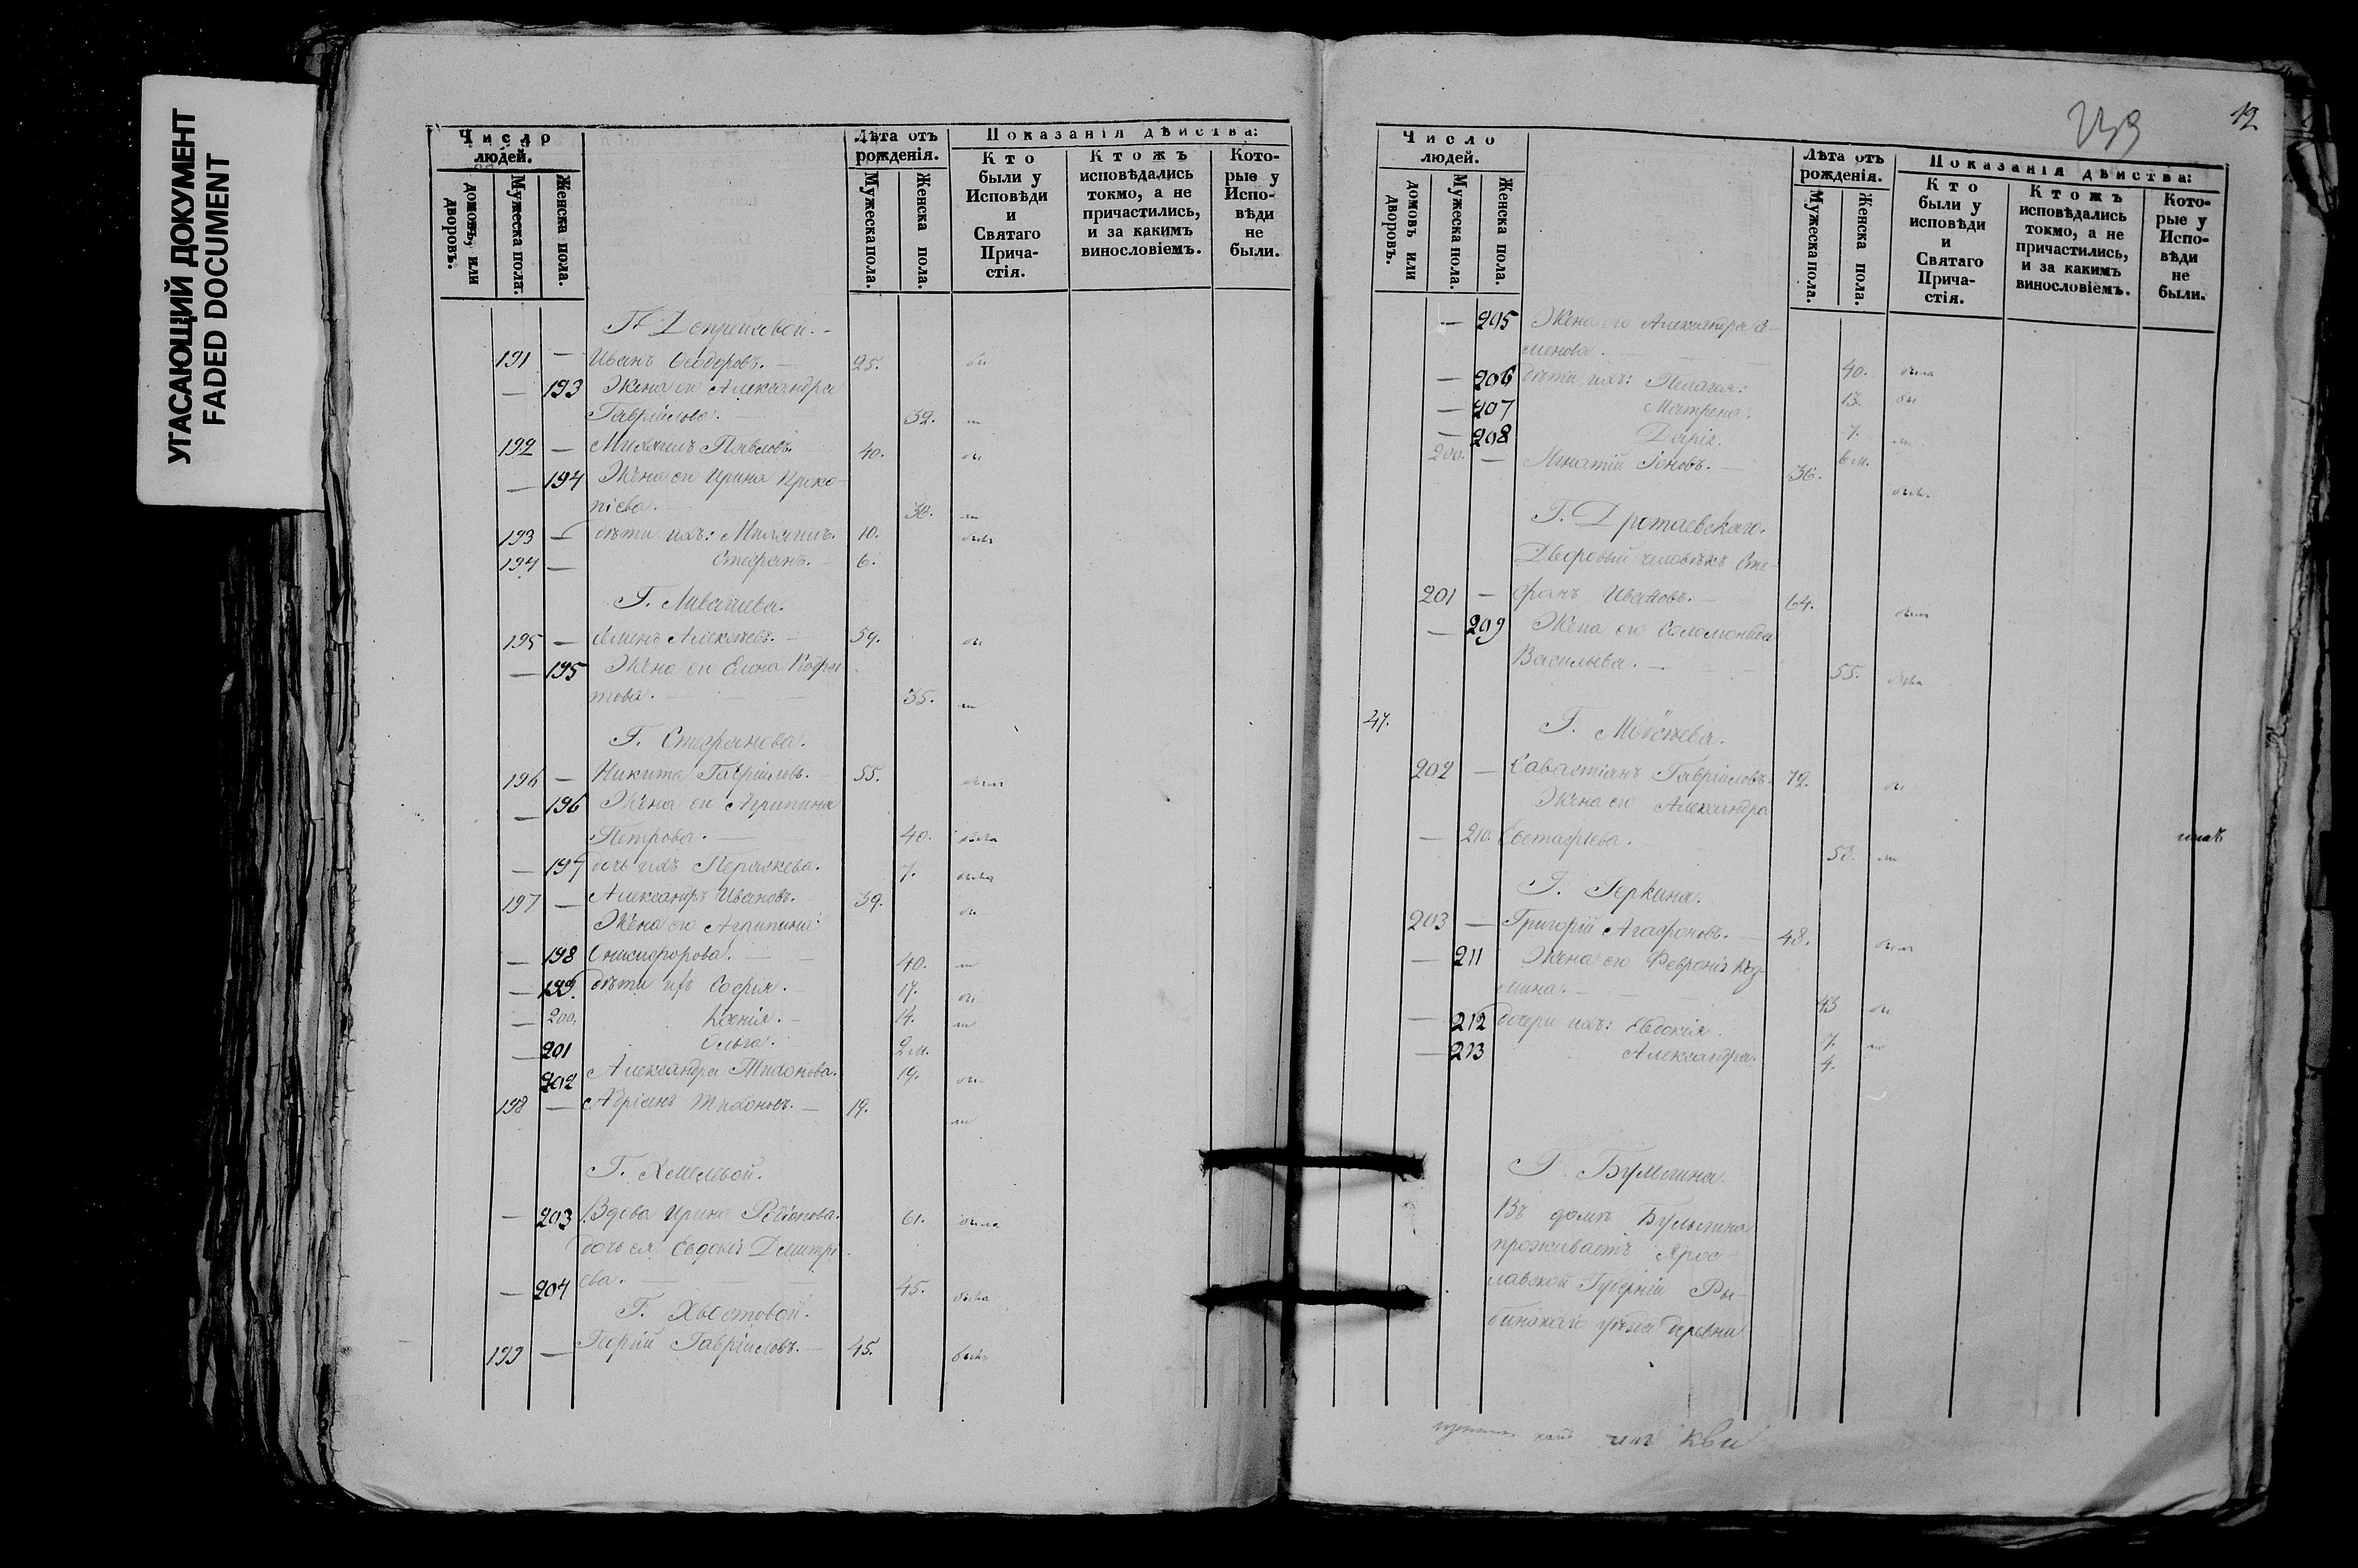 УГАСАЮЩИЙ ДОКУМЕНТ
FADED DOCUMENT
Число людей.
домовъ, или дворовъ.
Мужеска пола.
Женска пола.
Лѣта отъ рожденія.
Мужеска пола.
Женска пола.
Показанія дѣйства:
Кто были у Исповѣди и Святаго Прича-стія.
Ктожъ исповѣдались токмо, а не причастились, и за какимъ винословіемъ.
Кото-рые у Испо-вѣди не были.
191 — Иванъ Ѳеодоровъ. — 25.
— 193 Жена его Александра
Гавріилова. 32.
192 — Михаилъ Павловъ. 40.
— 194 Жена его Ирина Проко-
піева. 38.
193 — дѣти ихъ: Михаилъ. 10.
194 — Стефанъ. — 6.
Г. Ливашева.
195 — Семенъ Алексѣевъ. — 59.
— 195 Жена его Елена
това. — — 35.
Г. Стефанова.
196 — Никита Гавріиловъ. — 55.
— 196 Жена его Агрипина
Петрова. — 40. была
— 197 дочь ихъ Пераскева. 7. была
197 — Александръ Ивановъ. 39.
Жена его Агрипина
— 198 Онисифорова. — 40.
— 199. дѣти ихъ София. — 17.
— 200. Ксенія. — 14.
— 201 Ольга. 2 м.
202 Александра Тихонова. 19.
198 — Адріанъ Тихоновъ. — 19.
Г. Хмелевой.
— 203 Вдова Ирина Родіонова. 61. была
дочь ея Евдокія Димитрі-
— 204 ева. — — 45. была
Г. Хвостовой.
199 — Георгій Гавріиловъ. — 45. былъ
239
12
Число людей.
домовъ или дворовъ.
Мужеска пола.
Женска пола.
Лѣта отъ рожденія.
Мужеска пола.
Женска пола.
Показанія дѣйства:
Кто были у исповѣди и Святаго Прича-стія.
Ктожъ исповѣдались токмо, а не причастились, и за какимъ винословіемъ.
Кото-рые у Испо-вѣди не были.
— 205 Жена его Александра Се-
менова. 40. была
— 206 дѣти ихъ: Пелагея: 13.
— 207 Матрена. 7.
— 208 Дарія. 6 м.
200. — Игнатій Іоновъ. 36. былъ
Дворовый человѣкъ Сте-
201 — фанъ Ивановъ. — 64. былъ
— 209 Жена его Соломонида
Васильева. — 55. была
47.
Г. Моисѣева.
202 — Савастіанъ Гавріиловъ. 72.
Жена его Александра
— 210. Евстафіева. 58.
Г. Геркина.
203 — Григорій Агафоновъ. — 48. былъ
— 211 Жена его Февронія Коз-
мина. — 43
— 212 дочери ихъ: Евдокія. 7.
— 213 Александра. 4.
Г. Булыгина.
Въ домѣ Булыгина
проживаетъ Ярос-
лавской Губерніи Ры-
бинскаго уѣзда деревни